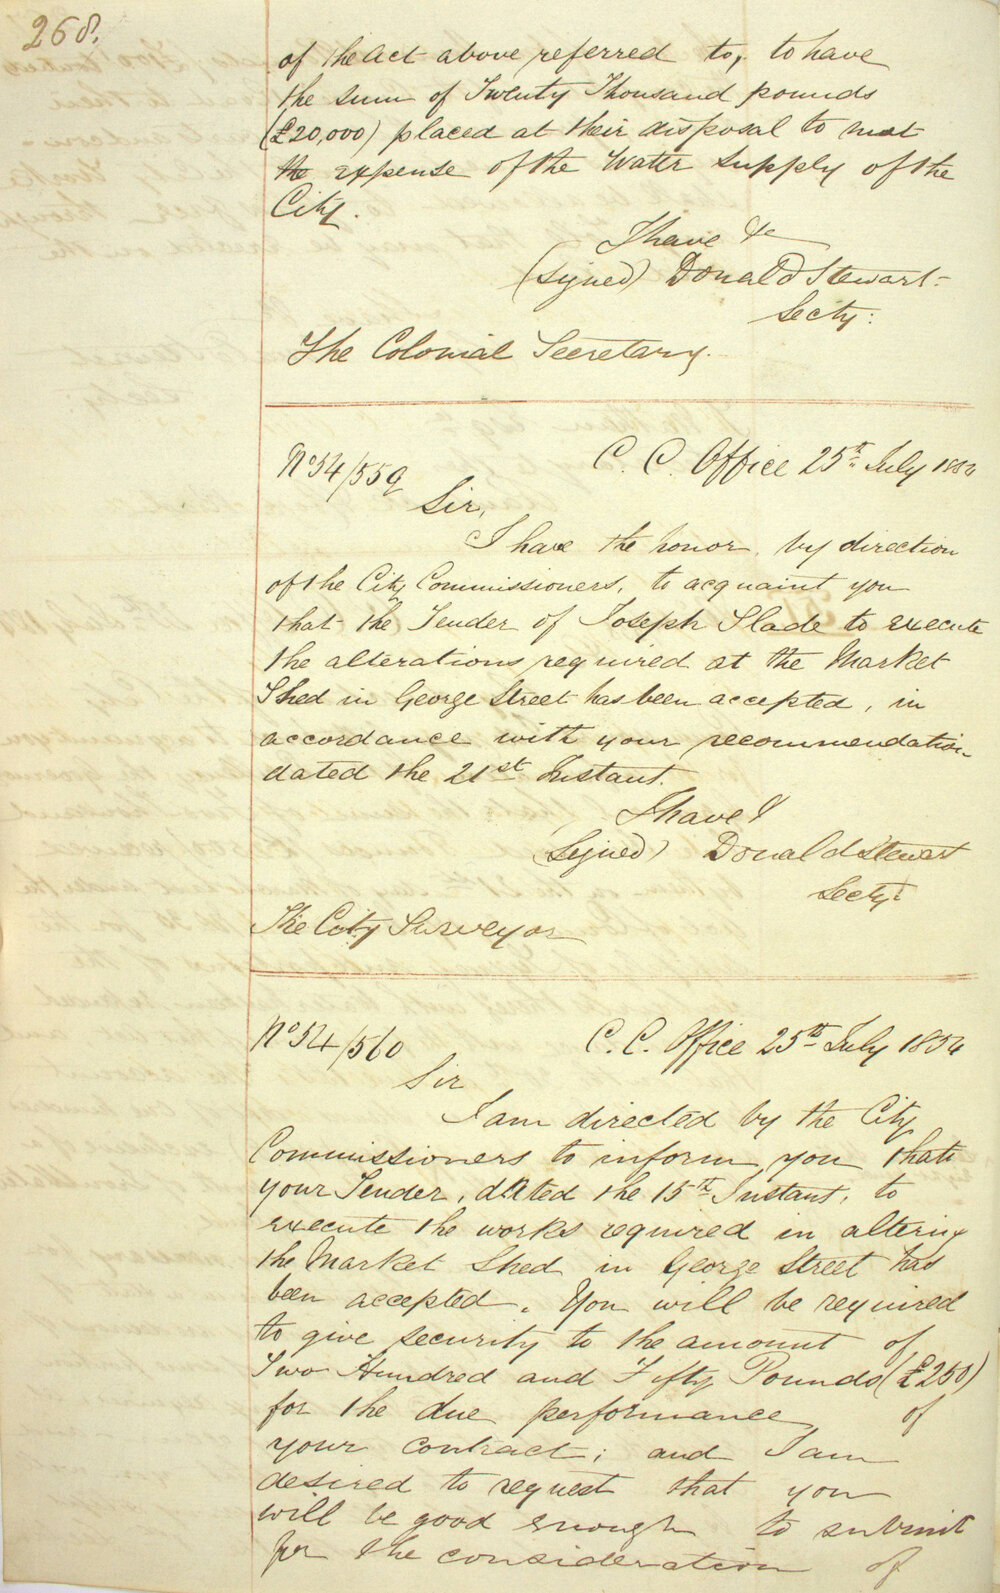 268.
of the Act above referred to, to have
the sum of Twenty Thousand pounds
(£20,000) placed at their disposal to meet
the expense of the Water Supply of the
City.
I have &c
(signed) Donald Stewart
Secty:
The Colonial Secretary.
No 54/559
C. C. Office 25th July 1854
Sir,
I have the honor, by direction
of the City Commissioners, to acquaint you
that the Tender of Joseph Slade to execute
the alterations required at the Market
Shed in George Street has been accepted, in
accordance with your recommendation
dated the 21st Instant.
I have &
(Signed) Donald Stewart
Secty:
The City Surveyor
No 54/560
C. C. Office 25th July 1854
Sir
I am directed by the City
Commissioners to inform you that
your Tender, dated the 15th Instant, to
execute the works required in altering
the Market Shed in George Street has
been accepted. You will be required
to give security to the amount of
Two Hundred and Fifty Pounds (£250)
for the due performance of
your contract; and I am
desired to request that you
will be good enough to submit
for the consideration of